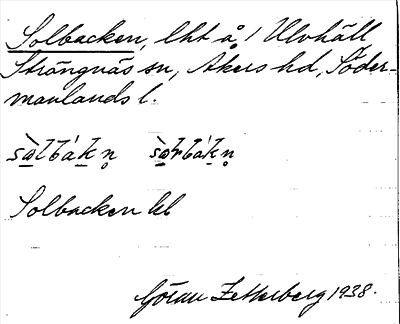 Solbacken, lht å 1 Ulvhäll
Strängnäs sn, Åkers hd, Söder-
manlands l.
sὰlbákn̥ sὰrbákn̥
Solbacken kb
Göran Zetterberg 1938.